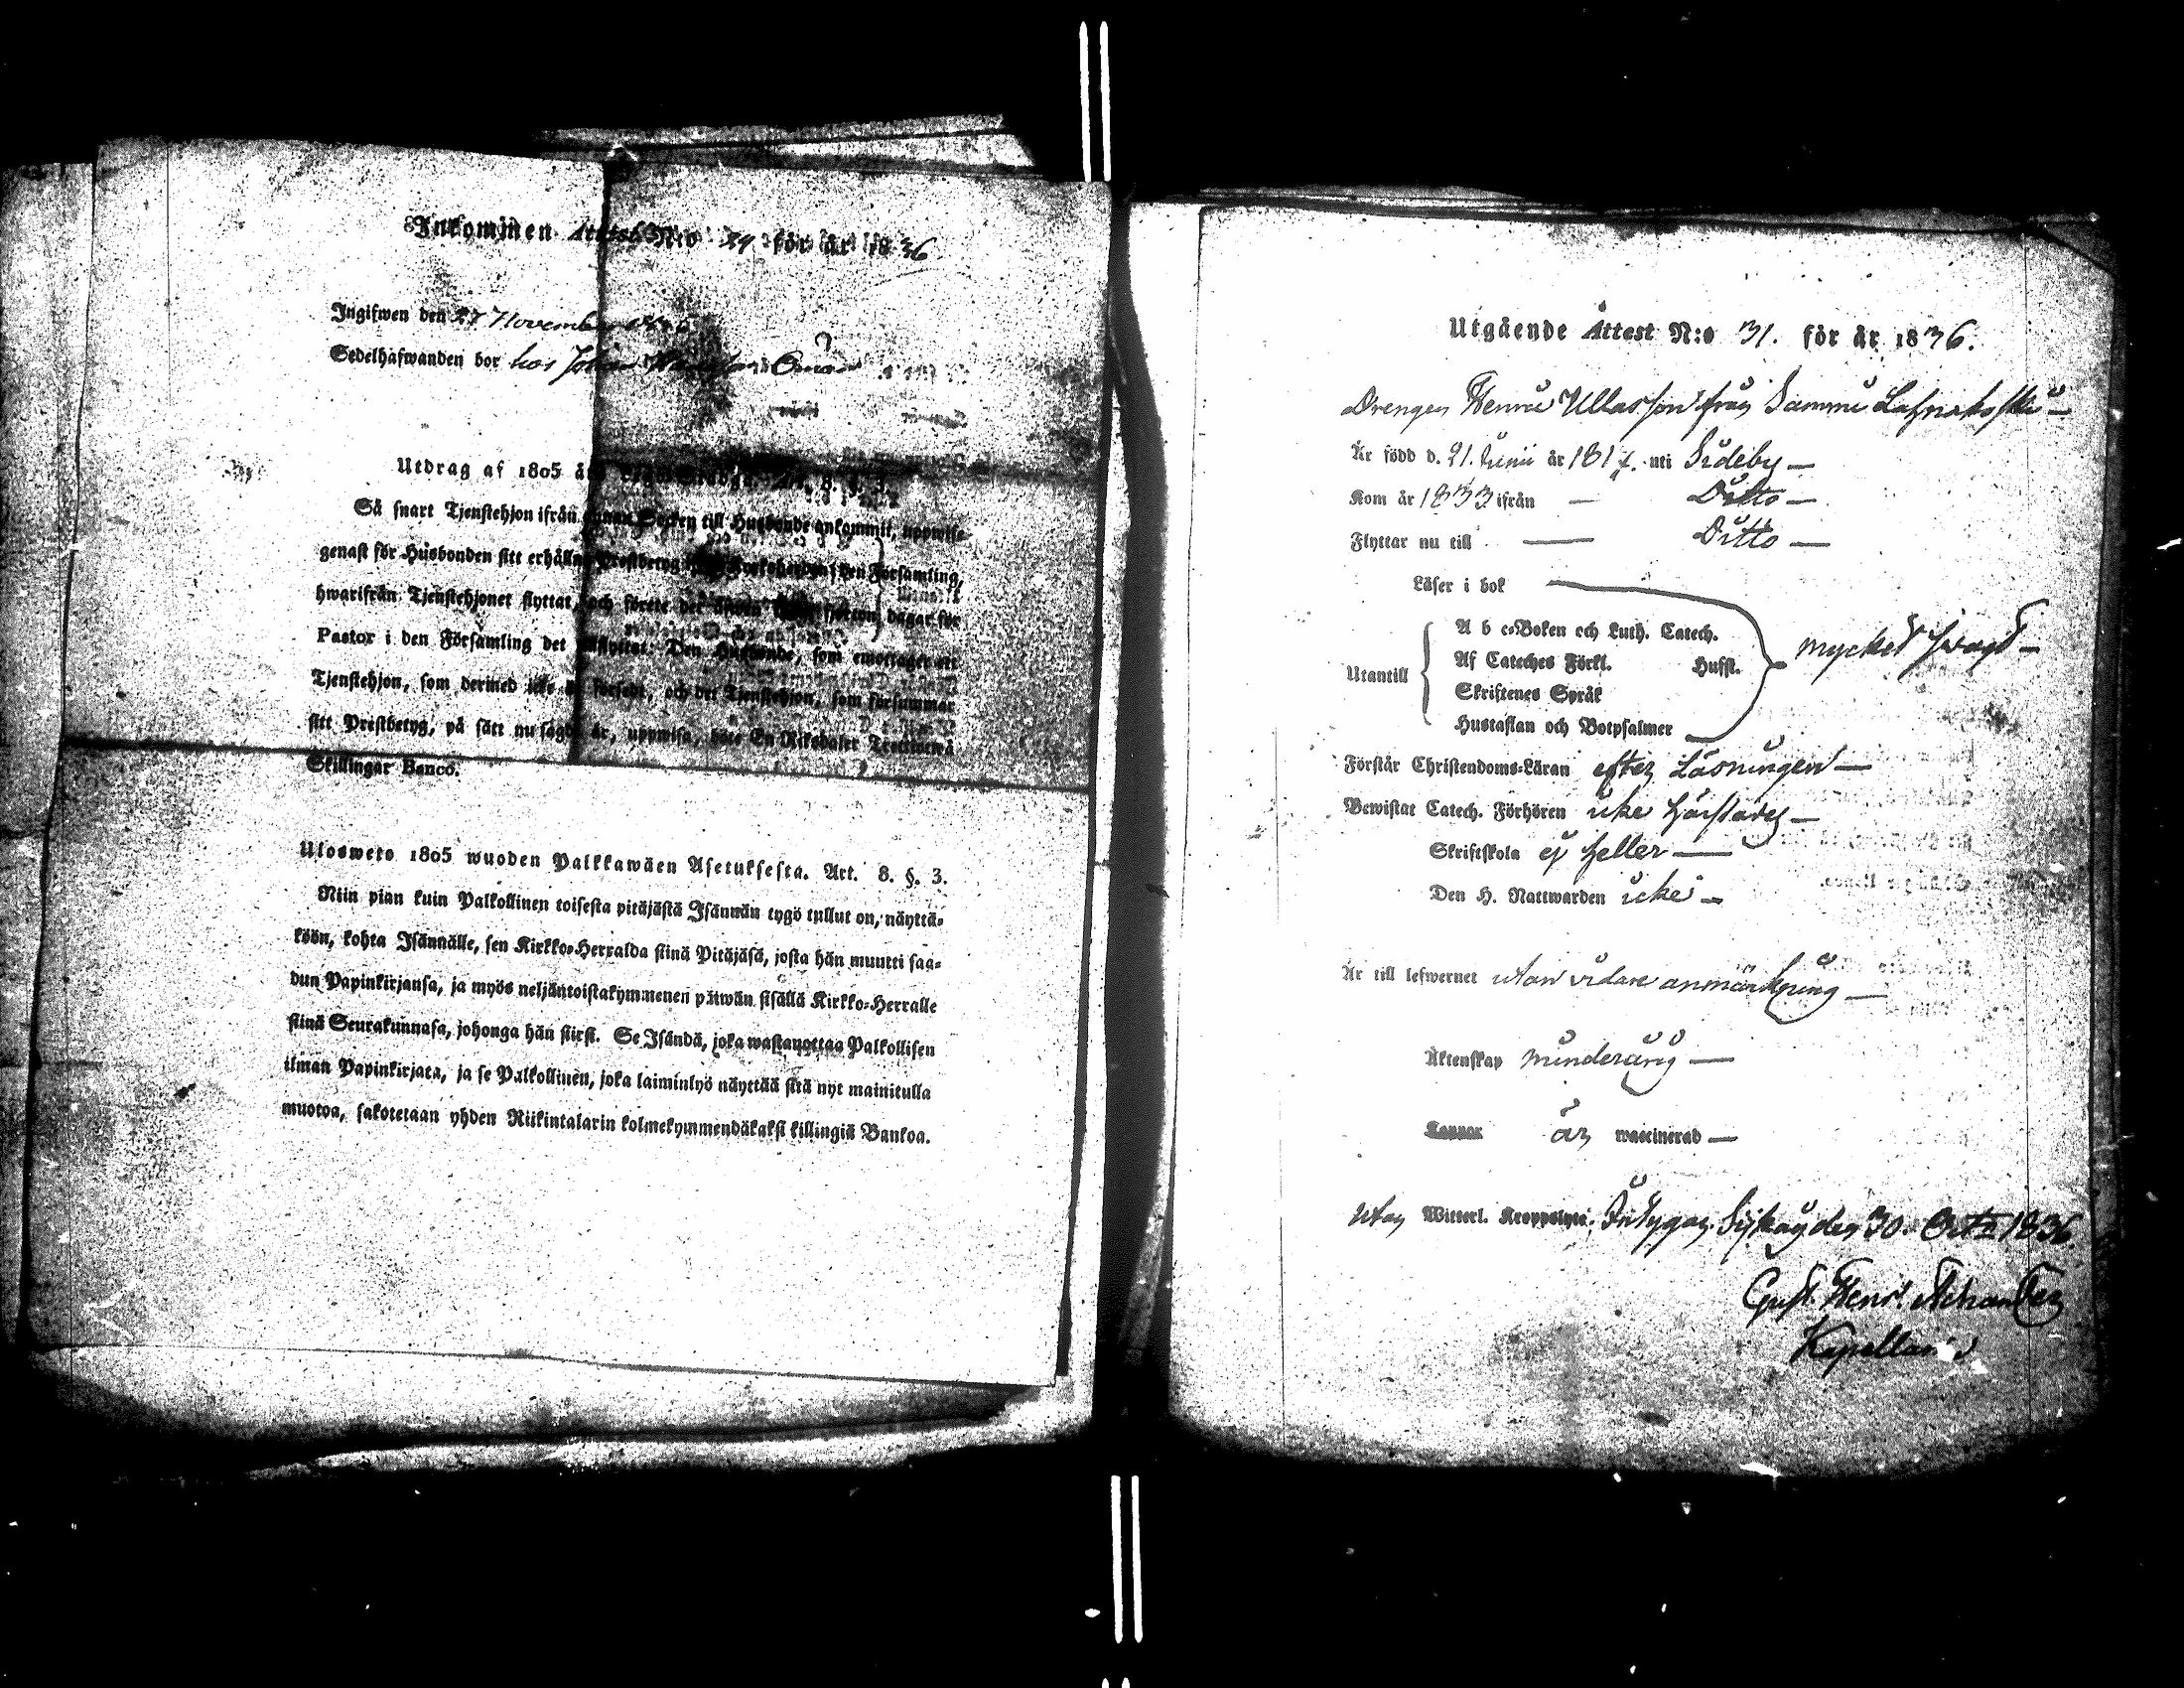 Inkommen Attest N:o 24 för år 1836
Ingifwen den 27 November
Sedelhafwanden bor hos Johan
Utdrag af 1805 års Art. 8. §. 3.
Så snart Tjenstehjon ifrån annan Socken till Husbonde ankommit, uppwise
genast för Husbonden sitt erhållna Prestbetyg den Församling,
hwarifrån Tjenstehjonet flyttat, och förete det fjorton dagar för
Pastor i den Församling det inflyttat. Den Husbonde, som emottager ett
Tjenstehjon, som dermed icke är försedt, och det Tjenstehjon, som försummar
sitt Prestbetyg, på sätt nu sagdt är, uppwisa, böte En Riksdaler Trettiotwå
Skillingar Banco.
Ulosweto 1805 wuoden Palkkawäen Asetuksesta. Art. 8. §. 3.
Niin pian kuin Palkollinen toisesta pitäjästä Isännän tygö tullut on, näyttä-
köön, kohta Isännälle, sen Kirkko-Herralda siinä Pitäjäsä, josta hän muutti saa-
dun Papinkirjansa, ja myös neljäntoistakymmenen päiwän sisällä Kirkko-Herralle
siinä Seurakunnasa, johonga hän siirsi. Se Isändä, joka wastauottaa Palkollisen
ilman Papinkirjata, ja se Palkollinen, joka laiminlyö näyttää sitä nyt mainitulla
muotoa, sakotetaan yhden Riikintalarin kolmekymmendäkaksi killingiä Bankoa.
Utgående Attest N:o 31. för år 1836.
Drengen Henric Ullasson från Sammi
Är född d. 21. Junii år 181 uti Sideby —
Kom år 1833 ifrån — Ditto —
Flyttar nu till — Ditto —
Läser i bok
A b c-Boken och Luth. Catech.
Af Cateches Förkl. Hussl.
Utantill mycket swagt —
Skriftenes Språk
Hustaflan och Botpsalmer
Förstår Christendoms-Läran efter Läsningen —
Bewistat Catech. Förhören icke härstädes —
Skriftskola ej heller —
Den H. Nattwarden icke —
Är till lefwernet utan vidare anmärkning —
Äktenskap minderårig —
är waccinerad —
utan Witterl. Kroppslyte. Intygar Sijkay den 30. Octr 1836.
Gust. Henr.
Kapellan